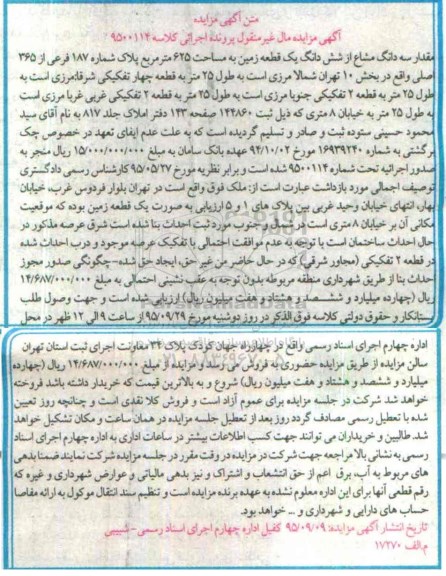 متن آگهی مزایده
آگهی مزایده مال غیرمنقول پرونده اجرائی کلاسه ۹۵۰۰۱۱۴
مقدار سه دانگ مشاع از شش دانگ یک قطعه زمین به مساحت ۶۲۵ مترمربع پلاک شماره ۱۸۷ فرعی از ۳۶۵
اصلی واقع در بخش ۱۰ تهران شمالا مرزی است به طول ۲۵ متر به قطعه چهار تفکیکی شرقا:مرزی است به
طول ۲۵ متر به قطعه ۲ تفکیکی جنوبا مرزی است به طول ۲۵ متر به قطعه ۲ تفکیکی غربی غربا مرزی است
به طول ۲۵ متر به خیابان ۸ متری که ذیل ثبت ۱۴۴۸۶۰ صفحه ۱۴۳ دفتر املاک جلد ۸۱۷ به نام آقای سید
محمود حسینی ستوده ثبت و صادر و تسلیم گردیده است که به علت عدم ایفای تعهد در خصوص چک
برگشتی به شماره ۱۶۹۳۹۲۴۰ مورخ ۹۴/۱۰/۰۲ عهده بانک سامان به مبلغ ۱۵/۰۰۰/۰۰۰/۰۰۰ ریال منجر به
صدور اجرائیه تحت شماره ۹۵۰۰۱۱۴ شده است و برابر نظریه مورخ ۹۵/۰۵/۲۷ کارشناس رسمی دادگستری
توصیف اجمالی مورد بازداشت عبارت است از: ملک فوق واقع است در تهران بلوار فردوس غرب، خیابان
بهار، انتهای خیابان وحید غربی بین پلاک های ۱ و ۵ ارزیابی به صورت یک قطعه زمین بوده که موقعیت
مکانی آن بر خیابان ۸ متری است و در شمال و جنوب مورد ثبت احداث بنا شده است شرق عرصه مذکور در
حال احداث ساختمان است با توجه به عدم موافقت احتمالی با تفکیک عرصه موجود و درب احداث شده
در قطعه ۲ تفکیکی (مجاور شرقی) که در حال حاضر من غیر حق، ایجاد حق شده-چگونگی صدور مجوز
احداث بنا از طریق شهرداری منطقه مربوطه بدون توجه به عقب نشینی احتمالی به مبلغ ۱۴/۶۸۷/۰۰۰/۰۰۰
ریال (چهارده میلیارد و ششصد و هشتاد و هفت میلیون ریال) ارزیابی شده است و جهت وصول طلب
بستانکار و حقوق دولتی کلاسه فوق الذکر در روز دوشنبه مورخ ۹۵/۰۹/۲۹ از ساعت ۹ الی ۱۲ ظهر در محل
اداره چهارم اجرای اسناد رسمی واقع در چهارراه جهان کودک پلاک ۳۴ معاونت اجرای ثبت استان تهران
سالن مزایده از طریق مزایده حضوری به فروش می رسد و مزایده از مبلغ ۱۴/۶۸۷/۰۰۰/۰۰۰ ریال (چهارده
میلیارد و ششصد و هشتاد و هفت میلیون ریال) شروع و به بالاترین قیمت که خریدار داشته باشد فروخته
خواهد شد شرکت در جلسه مزایده برای عموم آزاد است و فروش کلا نقدی است و چنانچه روز تعیین
شده با تعطیل رسمی مصادف گردد روز بعد از تعطیل جلسه مزایده در همان ساعت و مکان تشکیل خواهد
شد. طالبین و خریداران می توانند جهت کسب اطلاعات بیشتر در ساعات اداری به اداره چهارم اجرای اسناد
رسمی به نشانی بالا مراجعه جهت شرکت در مزایده در وقت مقرر در جلسه مزایده شرکت نمایند ضمنا بدهی
های مربوط به آب، برق اعم از حق انشعاب و اشتراک و نیز بدهی مالیاتی و عوارض شهرداری و غیره که
رقم قطعی آنها برای این اداره معلوم نشده به عهده برنده مزایده است و تنظیم سند انتقال موکول به ارائه مفاصا
حساب های دارایی و شهرداری و ... خواهد بود.
تاریخ انتشار آگهی مزایده: ۹۵/۰۹/۰۹ کفیل اداره چهارم اجرای اسناد رسمی - شبیبی
م.الف ۱۷۲۷۰